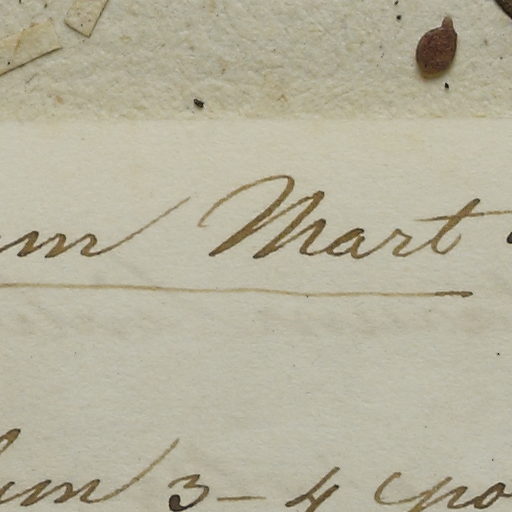 um Mart
um 3-4 spo